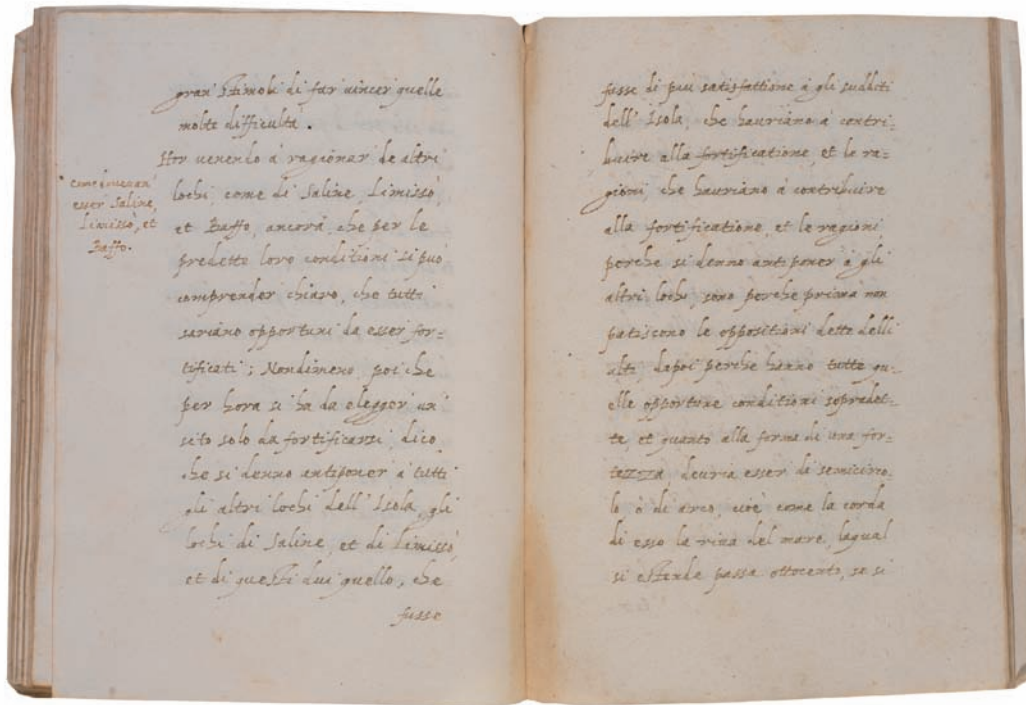 gran stimoli di far vincer quelle
molte difficultà.
Hor venendo à ragionar de altri
lochi, come di Saline, Limissò,
et Baffo, ancorà, che per le
predette loro conditioni si può
comprender chiaro, che tutti
sariano opportuni da esser for=
tificati; Nondimeno, poi che
per hora si ha da elegger un
sito solo da fortificarsi, dico,
che si denno antiponer à tutti
gli altri lochi dell' Isola, gli
lochi di Saline, et di Limissò,
et di questi dui quello, che
fusse
esser Saline,
Limissò, et
Baffo.
fusse di più satisfattione à gli sudditi
dell' Isola, che hauriano à contri=
buire alla fortificatione et le ra=
gioni, che hauriano à contribuire
alla fortificatione, et le ragioni
perche si denno antiponer à gli
altri lochi, sono perche prima non
patiscono le oppositioni dette delli
alti, dapoi perche hanno tutte qu=
elle opportune conditioni sopradet=
te, et quanto alla forma di una for=
tezza, deuria esser di semicirco=
lo, ò di arco, cioè come la corda
di esso la riua del mare, laqual
si estende passa ottocento, se si